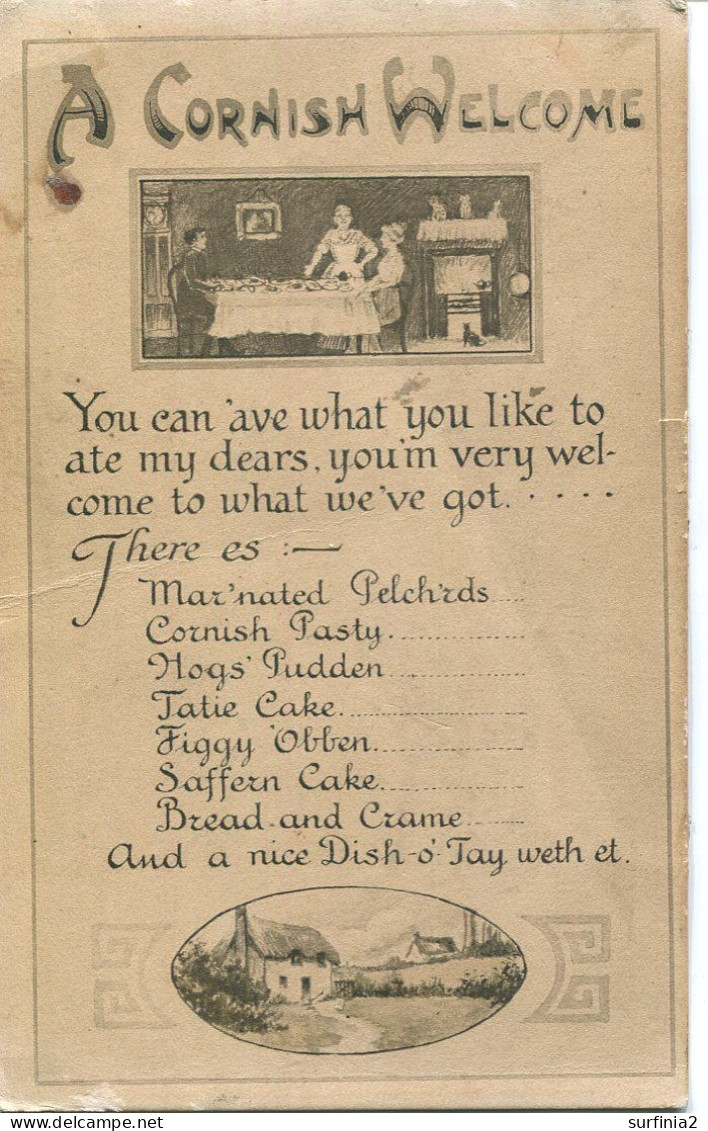 A CORNISH WELCOME
You can 'ave what you like to
ate my dears, you'm very wel-
come to what we've got. . . . .
There es :—
Mar'nated Pelch'rds ....
Cornish Pasty................
Hogs' Pudden................
Tatie Cake......................
Figgy 'Obben..................
Saffern Cake..................
Bread and Crame ........
And a nice Dish-o'-Tay weth et.
Delcampe.net
surfinia2